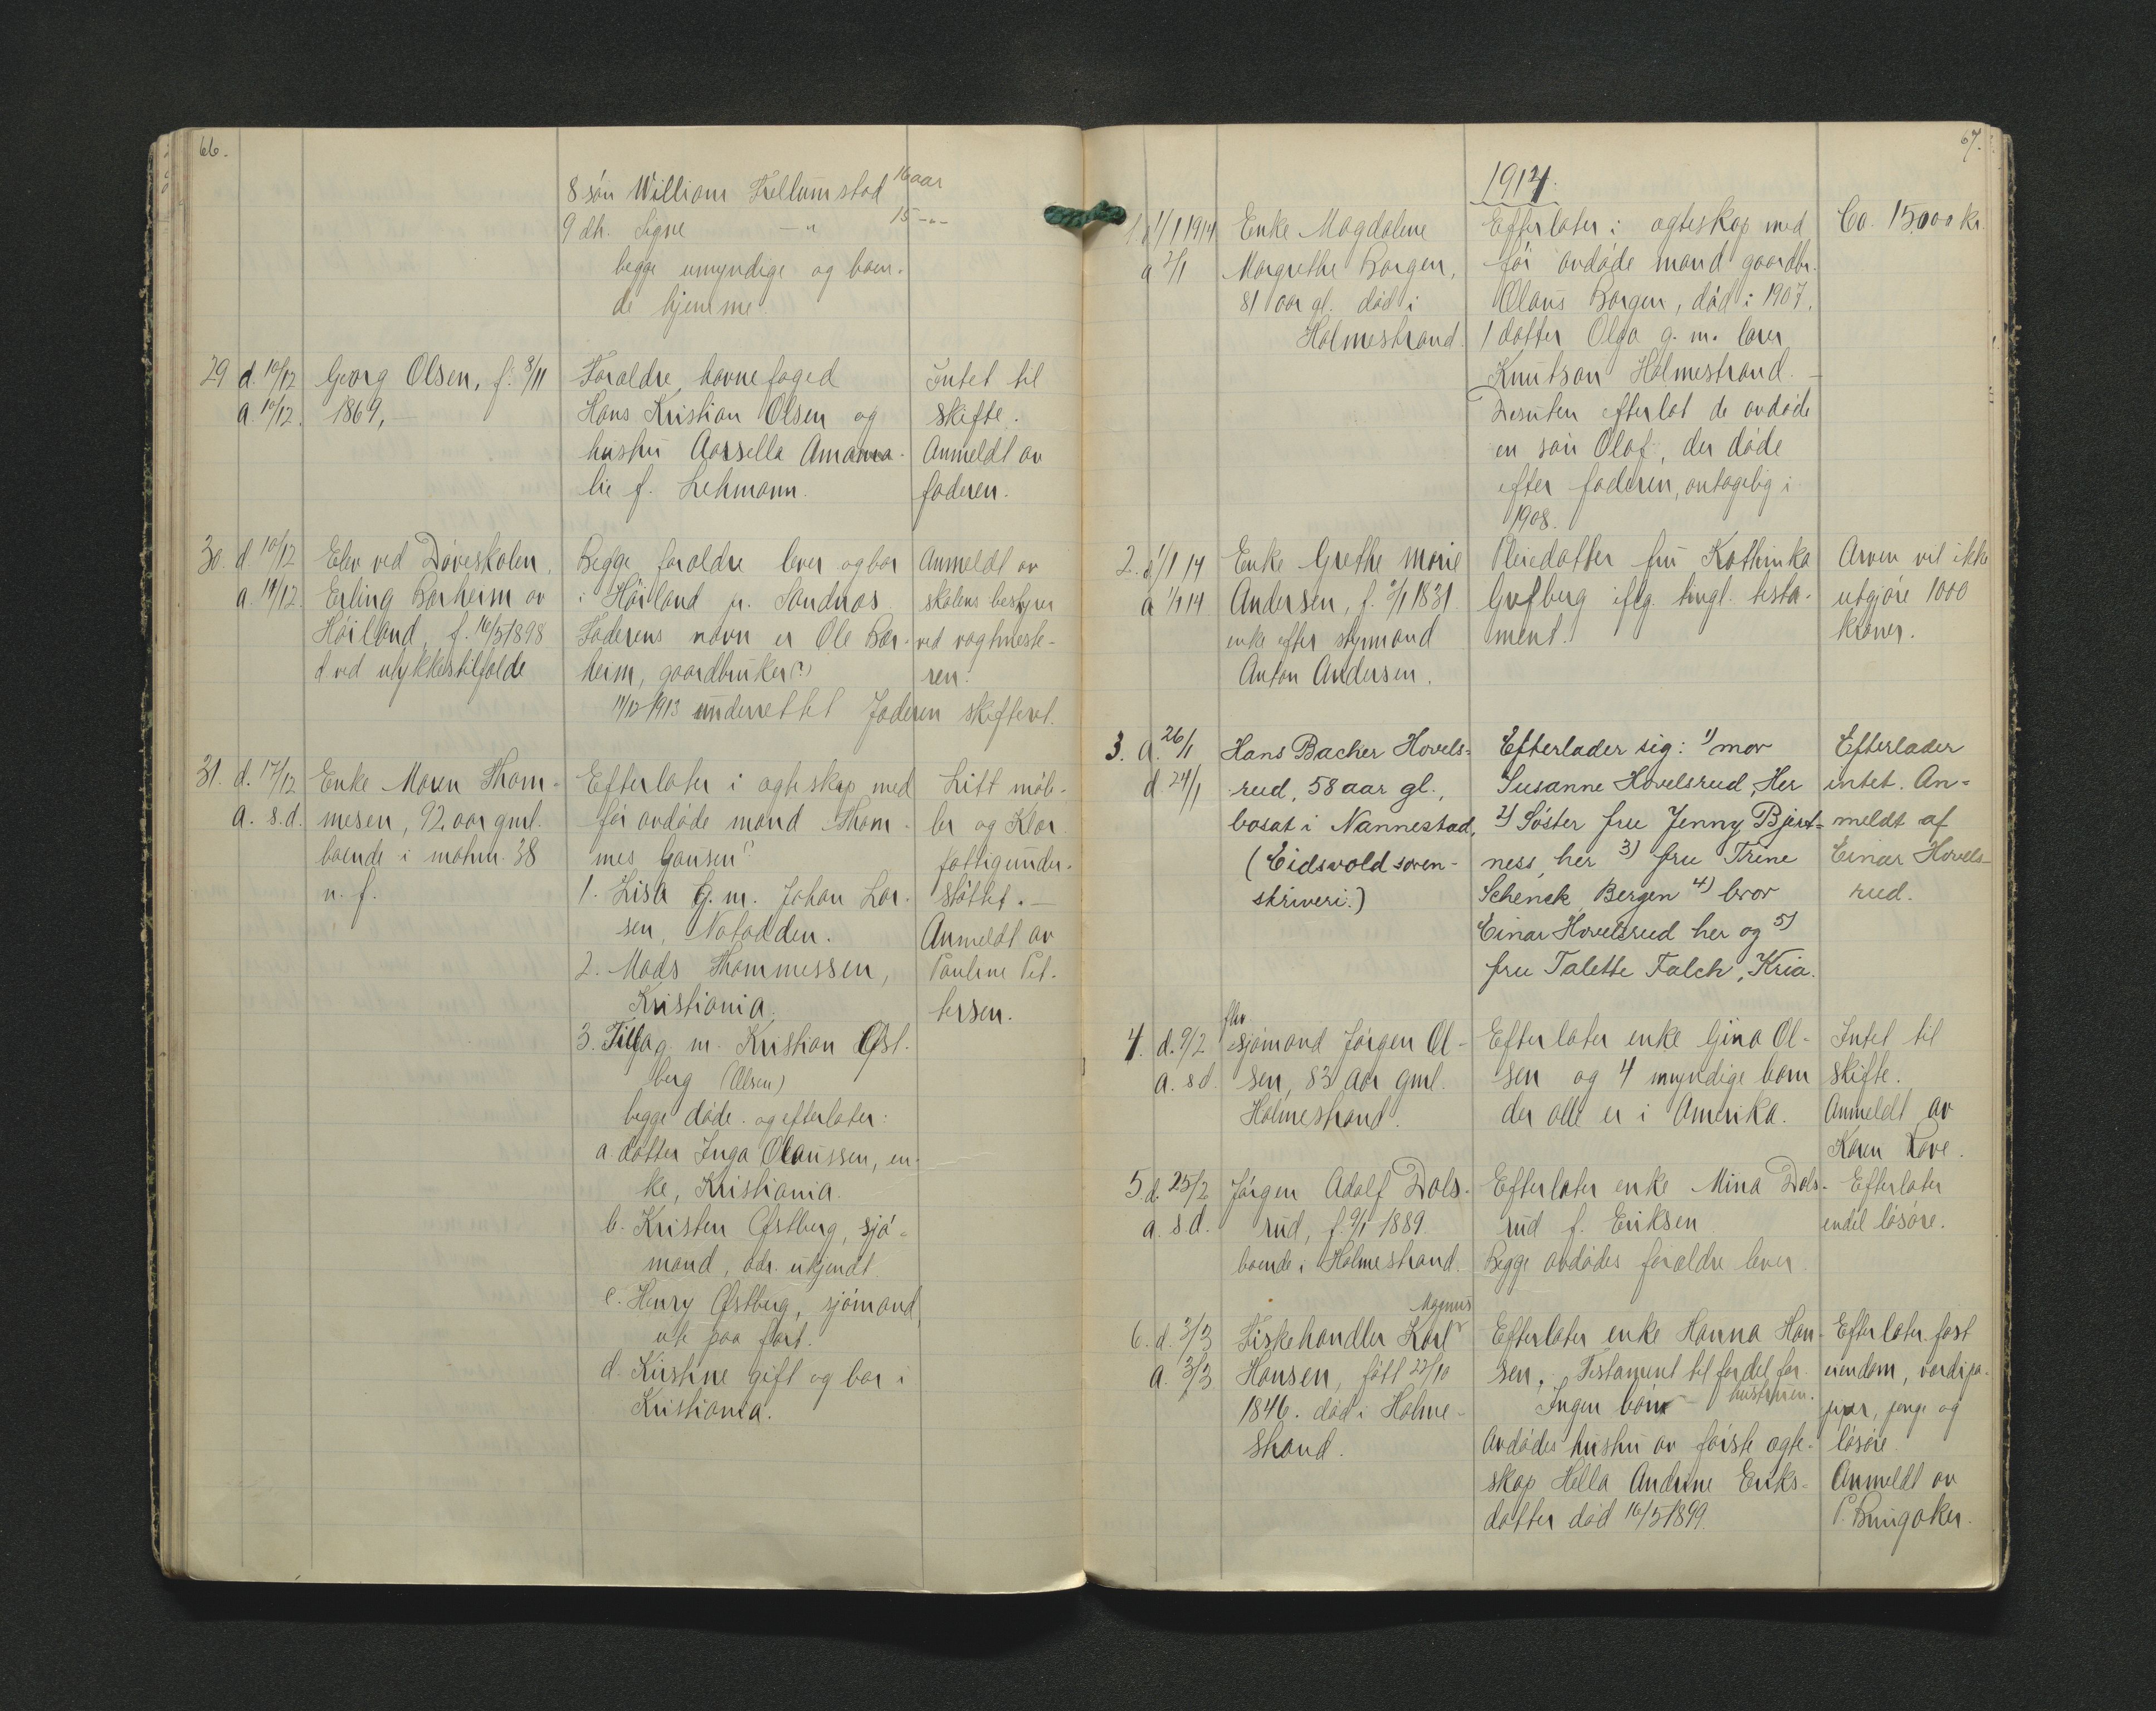 66.
8 søn William Trellumstad 16 aar
9 dt. Signe —"— 15 -"-
begge umyndige og boen-
de hjemme.
29 d. 10/12
a. 10/12.
Georg Olsen, f. 8/11
1869, —
Foreldre havnefoged
Hans Kristian Olsen og
hustru Aassella Amama-
lie f. Lehmann.
Intet til
skifte.
Anmeldt av
faderen.
30. d. 10/12
a. 14/12.
Elev ved Døveskolen,
Erling Barheim av
Høiland, f. 16/5 1898
d. ved ulykkestilfælde
Begge foreldre lever og bor
i Høiland pr. Sandnæs.
Faderens navn er Ole Bar-
heim, gaardbruker(?)
14/12 1913 underrettet Jæderen skifteret.
Anmeldt av
skolens bestyrer
ved vagtmeste-
ren.
31. d. 17/12
a. s.d.
Enke Maren Thom-
mesen, 92 aar gml.
boende i matrn. 38
n. f.
Efterlater i egteskap med
før avdøde mand Thom-
mes Gausen?
1. Lisa g. m. Johan Lar-
sen, Notodden.
2. Mads Thommessen,
Kristiania.
3. Tilla g. m. Kristian Østberg
(Olsen)
begge døde og efterlater:
a. datter Inga Olaussen, en-
ke, Kristiania.
b. Kristen Østberg, sjø-
mand, adr. ukjendt
c. Henry Østberg, sjømand,
ute paa fart.
d. Kristine gift og bor i
Kristiania.
Litt møb-
ler og klær
fattigunder-
støttet. —
Anmeldt av
Pauline Pet-
tersen.
67.
1914.
1. d 1/1 1914
a 2/1
Enke Magdalene
Margrethe Borgen,
81 aar gl. død i
Holmestrand.
Efterlater i egteskap med
før avdøde mand gaardbr.
Olaus Borgen, død i 1907,
1 datter Olga g. m. lærer
Knutson Holmestrand. —
Desuten efterlot de avdøde
en søn Olaf, der døde
efter faderen, antagelig i
1908.
Ca. 15,000 kr.
2. d 1/1 14
a 1/1 14
Enke Grethe Marie
Andersen, f. 2/1 1831
enke efter styrmand
Anton Andersen.
Pleiedatter fru Kathinka
Gulberg iflg. tingl. testa-
ment.
Arven vil ikke
utgjøre 1000
kroner.
3. a. 26/1
d. 24/1
Hans Bacher Hovels-
rud, 58 aar gl.,
bosat i Nannestad,
(Eidsvold soren-
skriveri.)
Efterlader sig: 1) mor
Susanne Hovelsrud, Her
2) Søster fru Jenny Bjert-
ness, her 3) fru Trine
Schenck, Bergen 4) bror
Einar Hovelsrud her og 5)
fru Talette Falch, Kria.
Efterlader
intet. An-
meldt af
Einar Hovels-
rud.
4. d. 9/2
a. s d.
fhv
sjømand Jørgen Ol-
sen, 83 aar gml.
Holmestrand.
Efterlater enke Gina Ol-
sen og 4 myndige barn
der alle er i Amerika.
Intet til
skifte.
Anmeldt av
Karen Love.
5 d. 25/2
a. s d.
Jørgen Adolf Dals-
rud, f. 9/1 1889
boende i Holmestrand.
Efterlater enke Mina Dals-
rud f. Eriksen
Begge avdødes forældre lever.
Efterlater
endel løsøre.
6. d. 3/3
a. 3/3
Fiskehandler Karl Magnus
Hansen, født 22/10
1846. død i Holme-
strand.
Efterlater enke Hanna Han-
sen. Testament til fordel for
hustruen.
Ingen barn
Avdødes hustru av første egte-
skap Hella Andrine Eriks-
datter død 16/5 1899.
Efterlater fast
eiendom, værdipa-
pirer, penge og
løsøre.
Anmeldt av
P. Bringaker.